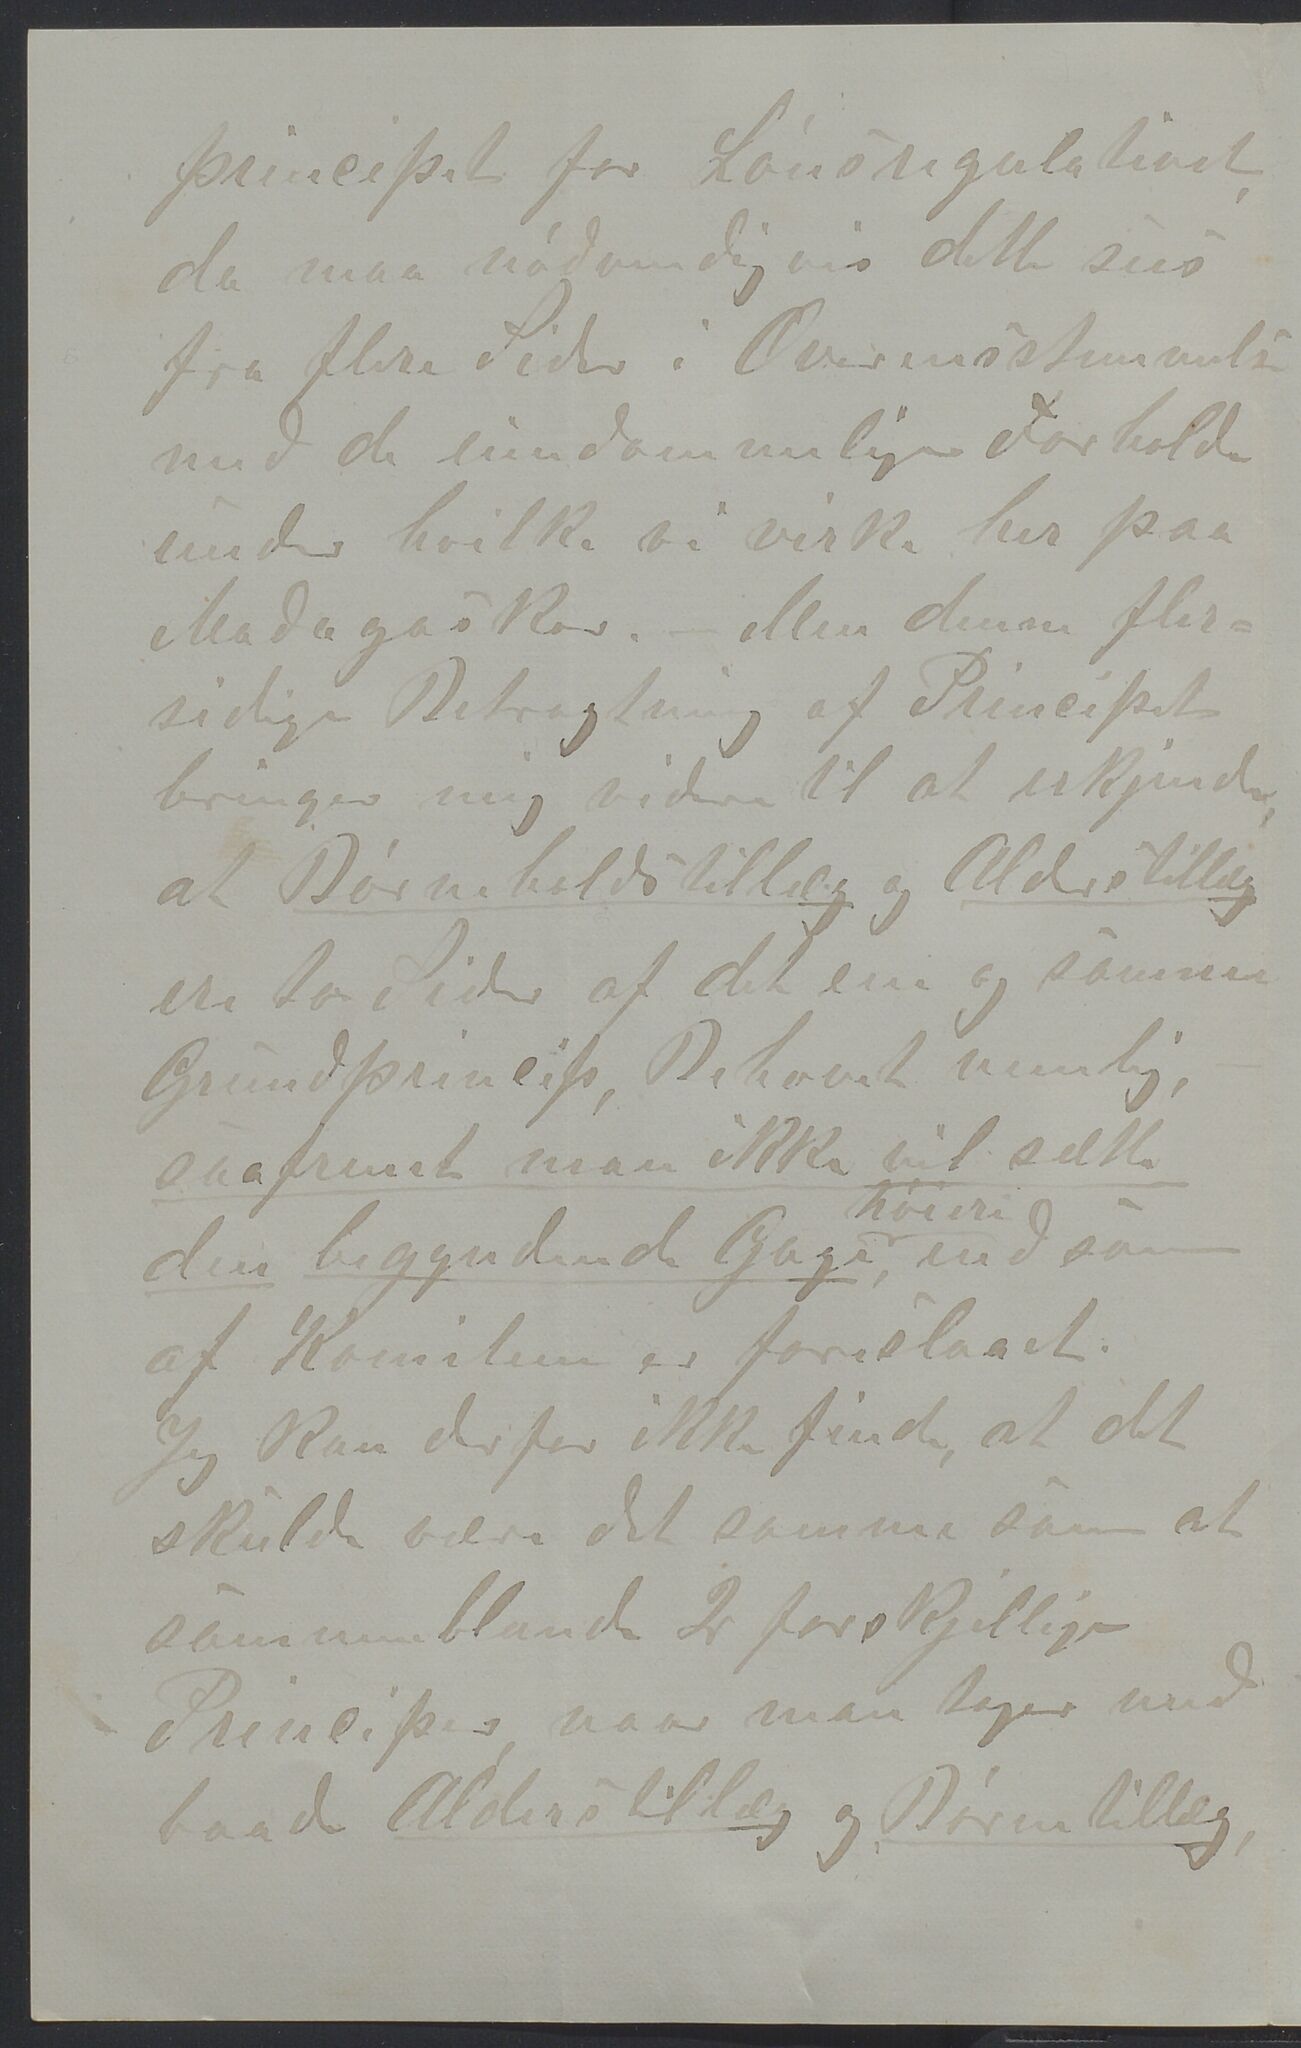 principet for Lönsregulativet,
da maa nödvendigvis dette sees
fra flere Sider i Overensstemmelse
med de eiendommelige Forholde
under hvilke vi virke her paa
Madagaskar. – Men denne fler=
sidige Betragtning af Principet
bringer mig videre til at erkjende,
at Börneholdstillæg og Alderstillæg
ere to Sider af det ene og samme
Grundprincip, Behovet nemlig, –
saafremt man ikke vil sætte
den begyndende Gage höiere, end som
af Komiteen er foreslaaet.
Jeg kan derfor ikke finde, at det
skulde være det samme som at
sammenblande 2 forskjellige
Principer, naar man tager med
baade Alderstillæg og Börnetillæg,